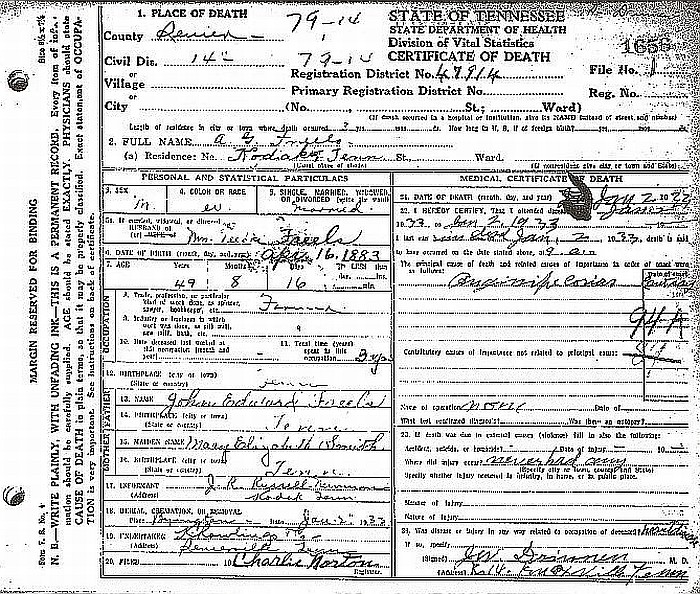 1. PLACE OF DEATH
79-14
STATE OF TENNESSEE
STATE DEPARTMENT OF HEALTH
Division of Vital Statistics
CERTIFICATE OF DEATH
1656
County Sevier
Civil Dis. 14
79-14
or
Village
or
City (No. St.; Ward)
Registration District No. 47914
File No.
Primary Registration District No.
Reg. No.
(If death occurred in a hospital or institution, give its NAME instead of street and number)
Length of residence in city or town where death occurred 3 yrs. mos. ds. How long in U. S., if of foreign birth? yrs. mos. ds.
2. FULL NAME
(a) Residence: No. Kodak Tenn St. Ward.
(Usual place of abode) (If nonresident give city or town and State)
PERSONAL AND STATISTICAL PARTICULARS
3. SEX
M.
4. COLOR OR RACE
W
5. SINGLE, MARRIED, WIDOWED, OR DIVORCED (write the word)
Married
5a. If married, widowed, or divorced
HUSBAND of
(or) WIFE of
Mrs. Freels
6. DATE OF BIRTH (month, day, and year) Apr. 16, 1883
7. AGE Years Months Days If LESS than
49 8 16
OCCUPATION
8. Trade, profession, or particular kind of work done, as spinner, sawyer, bookkeeper, etc.
Farmer
9. Industry or business in which work was done, as silk mill, saw mill, bank, etc.
10. Date deceased last worked at this occupation (month and year)
11. Total time (years) spent in this occupation
12. BIRTHPLACE (city or town)
(State or country) Tenn
FATHER
13. NAME John Edward Freels
14. BIRTHPLACE (city or town)
(State or country) Tenn.
MOTHER
15. MAIDEN NAME Mary Elizabeth Smith
16. BIRTHPLACE (city or town)
(State or country) Tenn.
17. INFORMANT J. R. Russell
(Address) Kodak Tenn
18. BURIAL, CREMATION, OR REMOVAL
Place Date Jan 2 1933
19. UNDERTAKER Rawlings
(Address) Sevierville Tenn
20. FILED 19 Charlie Norton
Registrar.
MEDICAL CERTIFICATE OF DEATH
21. DATE OF DEATH (month, day, and year) Jan 2 1933
22. I HEREBY CERTIFY, That I attended deceased
1933 to Jan 2 1933
I last saw alive Jan, 2 1933, death is said
to have occurred on the date stated above, at 9 a.m.
The principal cause of death and related causes of importance in order of onset were as follows:
Date of onset
94-A
Contributory causes of importance not related to principal cause:
Name of operation none Date of
What test confirmed diagnosis? Was there an autopsy?
23. If death was due to external causes (violence) fill in also the following:
Accident, suicide, or homicide? Date of injury 19
Where did injury occur? never had any
(Specify city or town, county, and State)
Specify whether injury occurred in industry, in home, or in public place.
Manner of injury
Nature of injury
24. Was disease or injury in any way related to occupation of deceased?
If so, specify
(Signed) M. D.
(Address) R 14 Knoxville Tenn
MARGIN RESERVED FOR BINDING
N. B.—WRITE PLAINLY, WITH UNFADING INK—THIS IS A PERMANENT RECORD. Every item of information should be carefully supplied. AGE should be stated EXACTLY. PHYSICIANS should state CAUSE OF DEATH in plain terms, so that it may be properly classified. Exact statement of OCCUPATION is very important. See instructions on back of certificate.